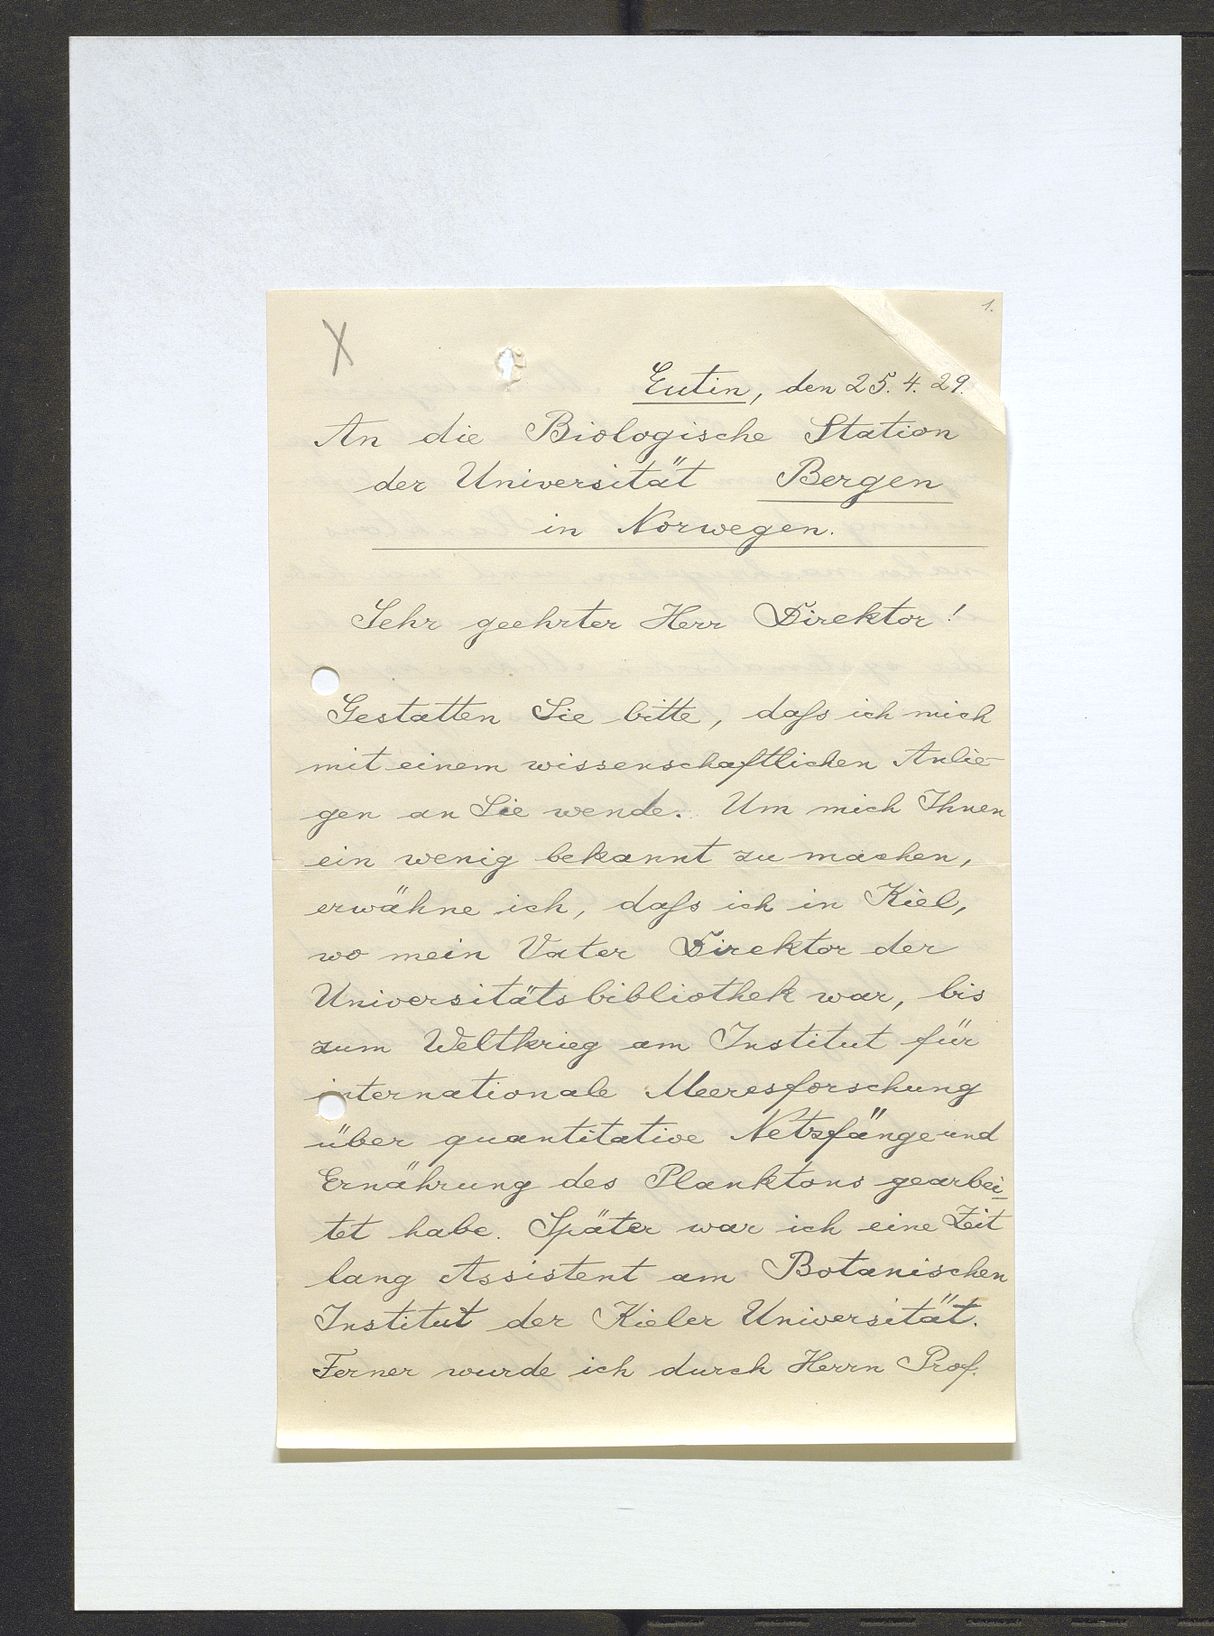 1.
X
Eutin, den 25.4.29.
An die Biologische Station
der Universität Bergen
in Norwegen.
Sehr geehrter Herr Direktor!
Gestatten Sie bitte, daſs ich mich
mit einem wissenschaftlichen Anlie-
gen an Sie wende. Um mich Ihnen
ein wenig bekannt zu machen,
erwähne ich, daſs ich in Kiel,
wo mein Vater Direktor der
Universitätsbibliothek war, bis
zum Weltkrieg am Institut für
internationale Meeresforschung
über quantitative Netzfänge und
Ernährung des Planktons gearbei-
tet habe. Später war ich eine Zeit
lang Assistent am Botanischen
Institut der Kieler Universität.
Ferner wurde ich durch Herrn Prof.